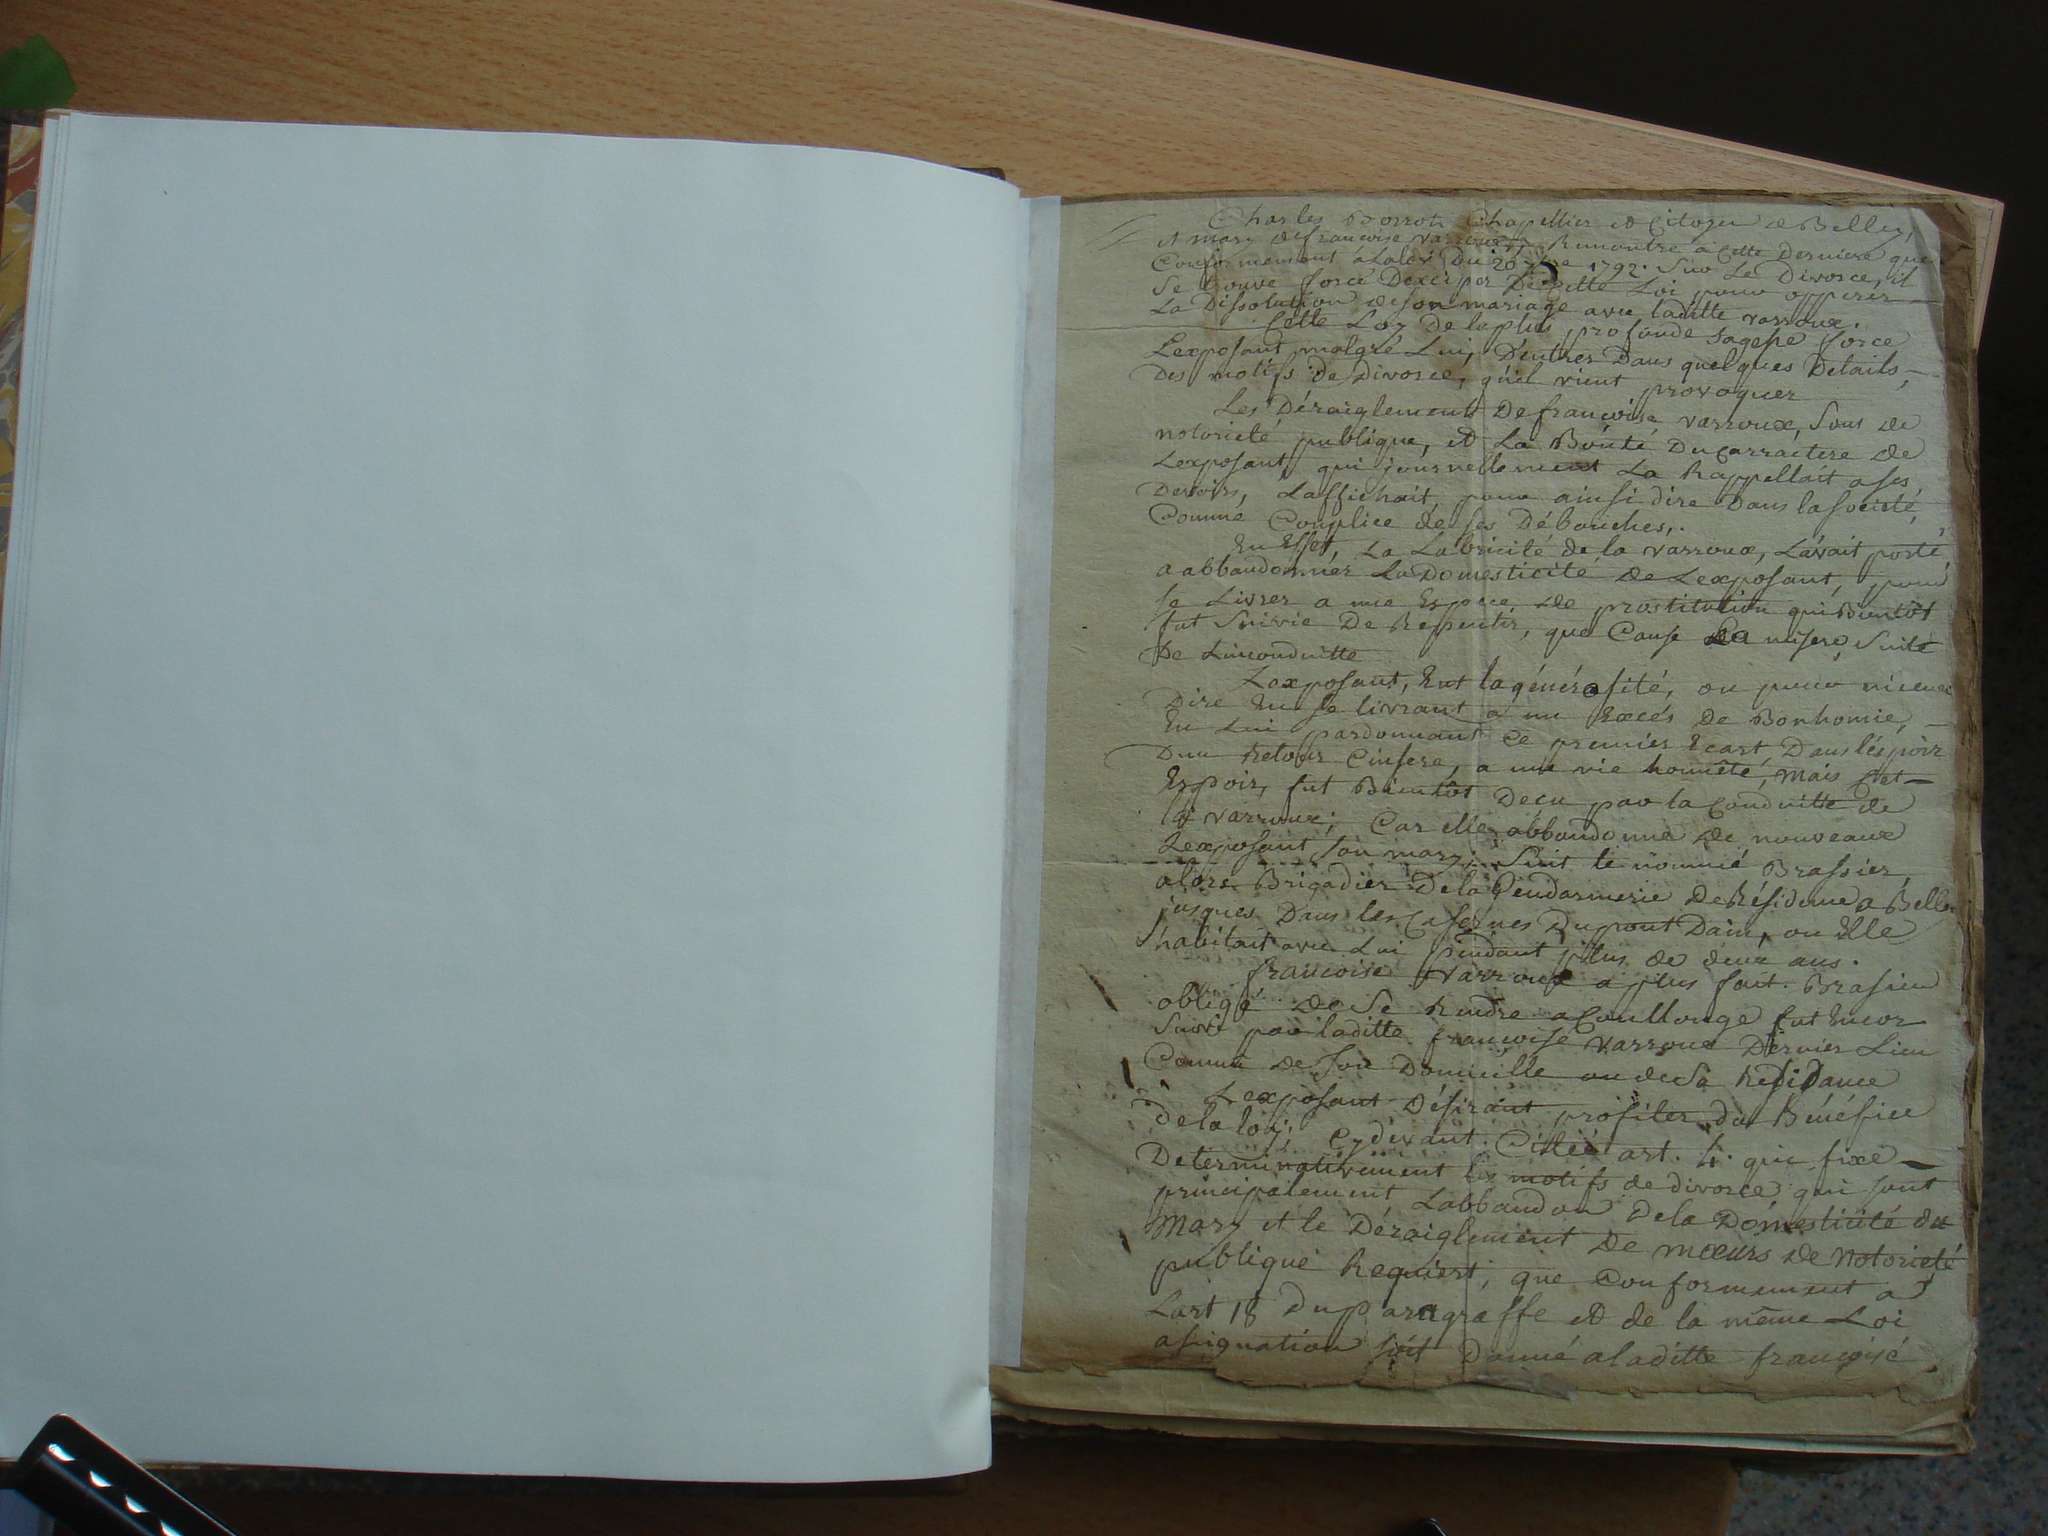 Charles Borron Chapellier et Citoyen de Belley,
et mary de francoise varroux, Remontre a Cette Derniere que
Conformement a La loy Du 20 7bre 1792. Sur Le Divorce, il
Se trouve forcé Dexciper De Cette Loi pour opperer
La Dissolution de son mariage avec laditte varroux.
Cette Loy De la plus profonde sagesse force
Lexposant malgré Lui, D'entrer Dans quelques Details,
Des motifs de Divorce, qu'il vient provoquer
Les Déraiglements De francoise varroux, Sont de
notorieté publique, et La Bonté Du Carractere de
Lexposant qui journellement La Rappellait a ses
Devoirs, Laffichait pour ainsi dire Dans la société
Comme Complice de ses Débauches,.
En Effet, La Lubricité de la varroux, L'avait porté
a abbandonner La Domesticité de Lexposant, pour
se Livrer a une Espece de prostitution qui Bientot
fut Suivie De Repentir, que Cause La misere Suite
De Linconduitte
Lexposant, Eut la générosité, ou pour mieux
Dire En se livrant a un Excés De Bonhomie,
En Lui pardonnant Ce premier Ecart Dans l'éspoir
Dun Retour Cinsere, a une vie honnêté, mais Cet
Espoir, fut Bientôt Decu par la Conduitte de
la varroux; Car elle abbandonne de nouveaux
Lexposant son mary; Suit le nommé Brassier
alors Brigadier De la Gendarmerie De Résidence a Belley
jusques Dans les Casernes Du pont Dain, ou Elle
habitait avec Lui pendant plus de deux ans.
francoise varroux a plus fait. Brasier
obligé de Se Rendre a Coullonge fut Encor
Suivi par laditte francoise varroux Dernier Lieu
Connu de Son Domicille ou de Sa Residance
Lexposant Désirant profiter du Bénéfice
de la loy, Cydevant Citée art. 4. qui fixe
Determinativement les motifs de divorce qui sont
principalement Labbandon De la Domesticité du
Mary et le Déraiglement De mœurs de Notorieté
publique Requiert, que Conformement a
Lart 18 Du paragraffe et de la même Loi
assignation soit Donné a laditte francoisé